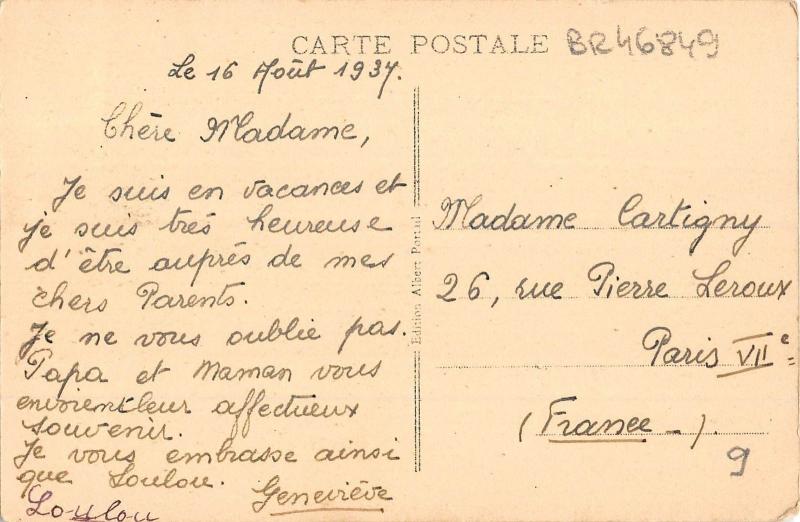 CARTE POSTALE BR46849
Le 16 Août 1937.
Chère Madame,
Je suis en vacances et
je suis très heureuse
d'être auprès de mes
chers Parents.
Je ne vous oublie pas.
Papa et Maman vous
envoient leur affectueux
souvenir.
Je vous embrasse ainsi
que Loulou.
Geneviève
Loulou
Edition Albert
Madame Cartigny
26, rue Pierre Leroux
Paris VIIe
(France-).
9